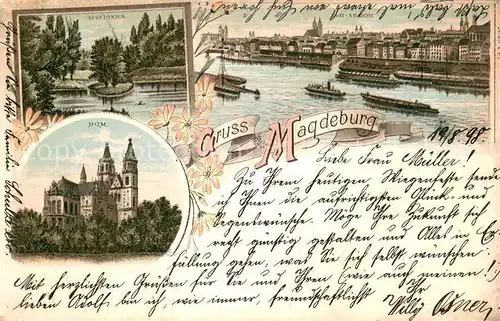 INSELTEICH
ELB-ANSICHT
DOM.
Gruss
Magdeburg
19/8 98
Liebe Frau Müller!
Zu Ihrem heutigen Wiegenfeste sende
ich Ihnen die aufrichtigsten Glück- und
Segenswünsche. Möge Ihre Zukunft sich
recht günstig gestalten und Alles in Er-
füllung gehen, was Sie sich selbst wünschen.
Mit herzlichsten Grüßen für Sie und Ihren (wie auch meinen!)
lieben Adolf bin ich, wie immer, freundschaftlichst Ihr
Willy